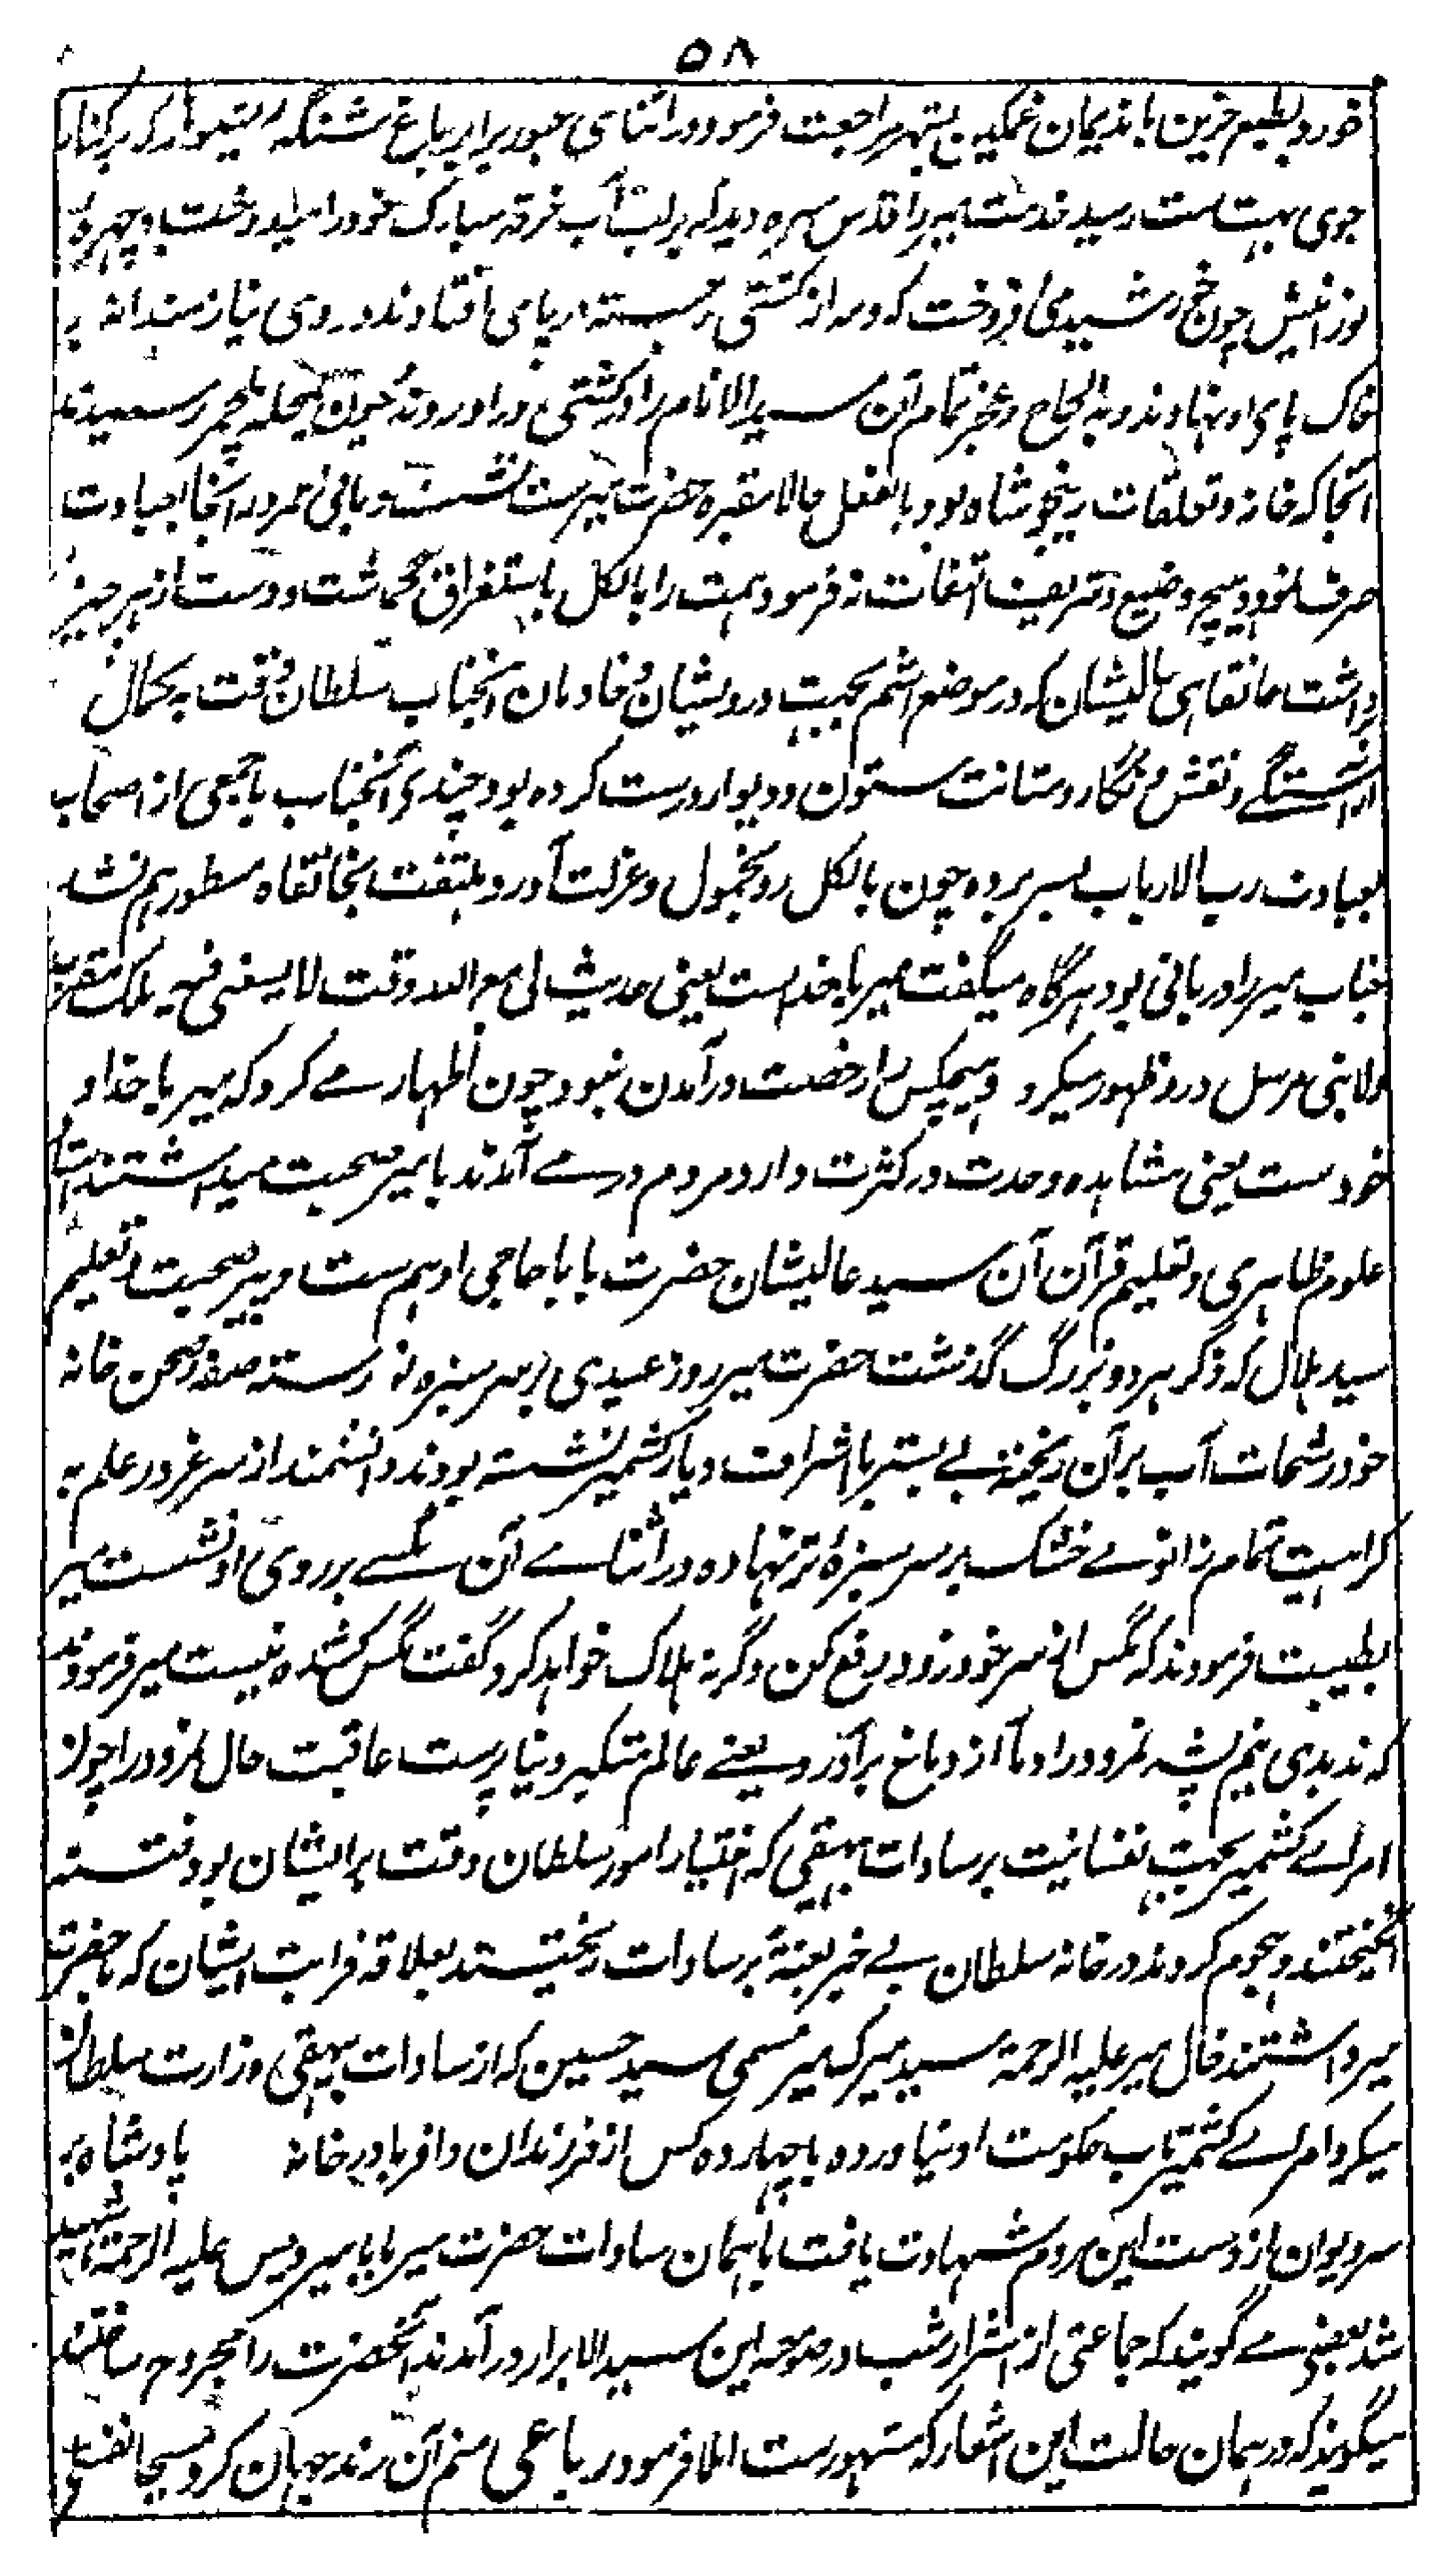 ۵۸
خورد بطبع حزین با ندیمان غمگین بشهر مراجعت فرمود در اثنای عبور برابر باغ که بر کنار
جوی بہت است رسیدند حضرت میر را قدس سره دید که بر لب آب خرقه مبارک خود را میدوخت و چهرهٔ
نورانیش چون خورشید می افروخت که و مه از کشتی برجسته در پای افتادند و روی نیازمندانه بر
خاک پای او نهادند و به الحاح و عجز تمام آن سید الانام را در کشتی در آوردند چون بمحله رسیدند
آنجا که خانه و تعلقات ریخو شاه بود بالفعل حالا مقبره حضرت میرست نشست و باقی عمر در آنجا بعبادت
صرف نمود و بهیچ وضیع و شریف التفات نه فرمود همت را بالکل باستغراق گماشت و دست از هر چیز
داشت خانقاهی عالیشان که در موضع اشم بجهت درویشان و خادمان آنجناب سلطان وقت به کمال
آراستگے و نقش و نگار و متانت ستون و دیوار درست کرده بود چندی آنجناب با جمعی از اصحاب
بعبادت رب الارباب بسر برده چون بالکل رو بخمول و عزلت آورد ملتفت بخانقاه مسطور هم نشد
جناب میر را دربانی بود هرگاه میگفت میر با خداست یعنی حدیث لی مع الله وقت لا یسعنی فیه ملک مقرب
ولا نبی مرسل درو ظهور میکرد و هیچکس را رخصت در آمدن نبود چون اظهار مے کرد که میر با خدا و
خودست یعنی مشاهده وحدت در کثرت دارد مردم در مے آمدند با میر صحبت میداشتند استاد
علوم ظاهری و تعلیم قرآن آن سید عالیشان حضرت بابا حاجی ادهم ست و پیر صحبت و تعلیم
سید هلال که ذکر هر دو بزرگ گذشت حضرت میر روز عیدی بر سر سبزه نو رسته صفه صحن خانه
خود رشحات آب بر آن ریخته بے بستر با اشراف دیار کشمیر نشسته بودند دانشمند از سر غرور علم به
کراهیت تمام زانوے خشک بر سر سبزهٔ تر نهاده در اثناے آن مگسے بر روی او نشست میر
بطیبت فرمودند که مگس از سر خود زود رفع کن وگرنه هلاک خواهد کرد گفت مگس کشنده نیست میر فرمودند
که ندیدی نیم پشه نمرود را دمار از دماغ برآورد یعنے عالم متکبر دنیا پرست عاقبت حال نمرود را چون
امراے کشمیر بجهت نفسانیت بر سادات بیهقی که اختیار امور سلطان وقت بر ایشان بود فتنه
انگیختند و هجوم کردند در خانه سلطان بے خبر بغتةً بر سادات ریختند بعلاقه قرابت ایشان که با حضرت
میر داشتند خال میر علیه الرحمة سید میر کبیر مسمی سید حسین که از سادات بیهقی وزارت سلطان
میکرد امراے کشمیر تاب حکومت او نیاورده با چهارده کس از فرزندان و اقربا در خانه پادشاه بر
سر دیوان از دست این مردم شهادت یافت با همان سادات حضرت میر بابا میر ویس علیه الرحمة شهید
شد بعضی مے گویند که جماعتی از اشرار شب در صومعه این سید الابرار در آمدند آنحضرت را مجروح ساختند
میگویند که در همان حالت این اشعار که مشهورست املا فرمود رباعی منم آن رند جهان گرد مسیحا نفسم